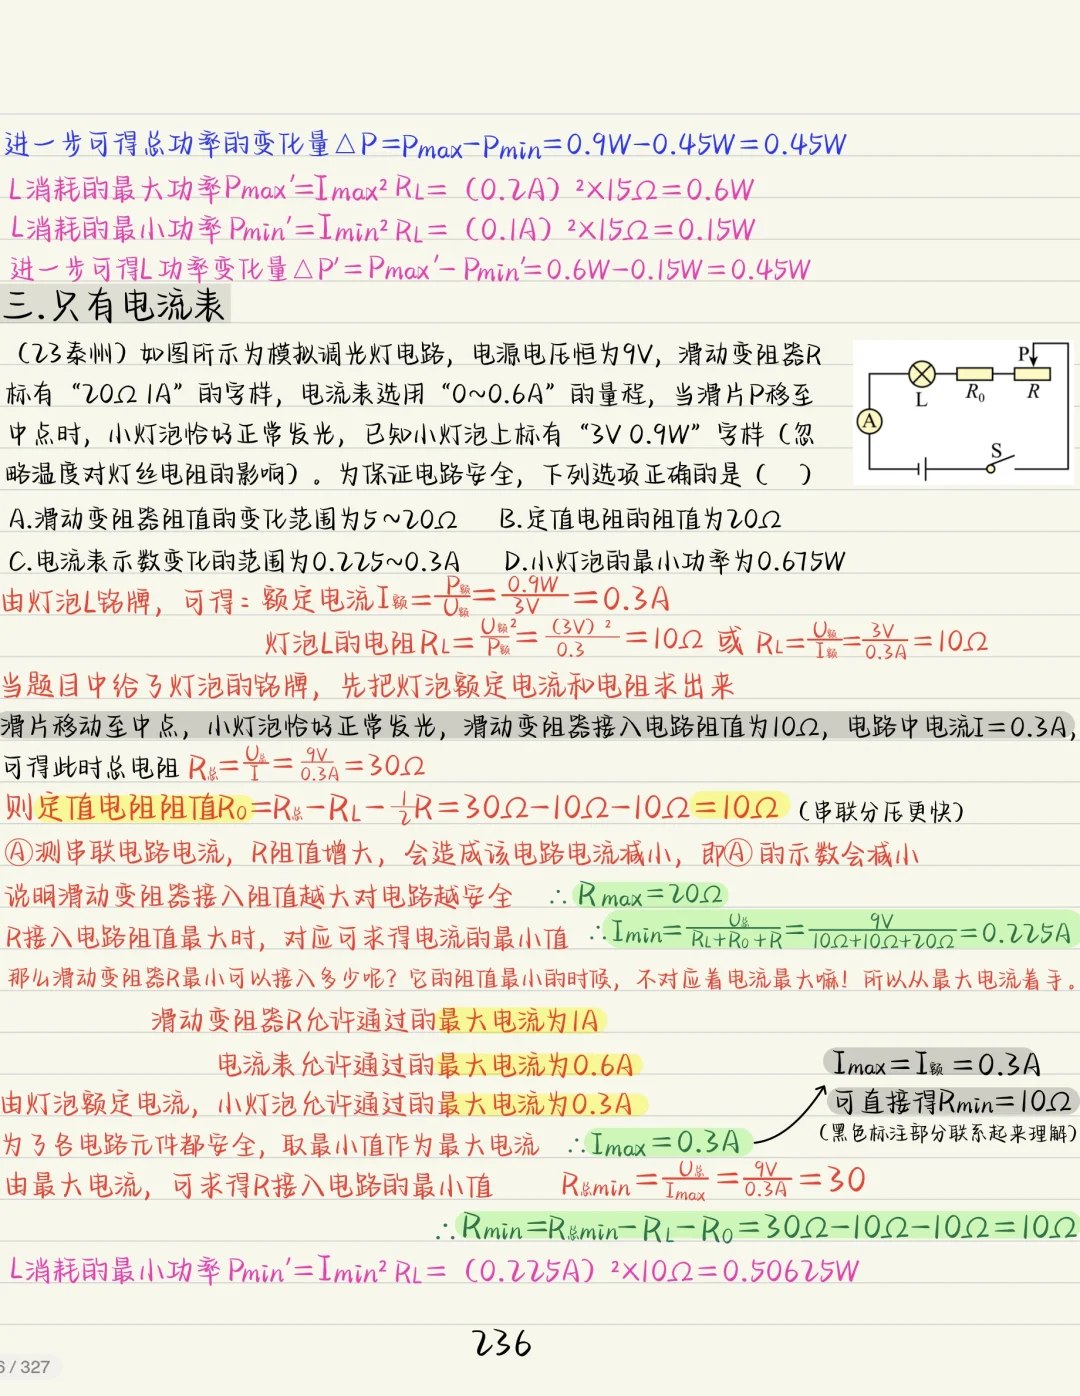 进一步可得总功率的变化量△P=Pmax-Pmin=0.9W-0.45W=0.45W
L消耗的最大功率Pmax′=Imax²RL=（0.2A）²×15Ω=0.6W
L消耗的最小功率Pmin′=Imin²RL=（0.1A）²×15Ω=0.15W
进一步可得L功率变化量△P′=Pmax′-Pmin′=0.6W-0.15W=0.45W
三.只有电流表
（23泰州）如图所示为模拟调光灯电路，电源电压恒为9V，滑动变阻器R
标有“20Ω 1A”的字样，电流表选用“0~0.6A”的量程，当滑片P移至
中点时，小灯泡恰好正常发光，已知小灯泡上标有“3V 0.9W”字样（忽
略温度对灯丝电阻的影响）。为保证电路安全，下列选项正确的是（ ）
P
L R₀ R
A
S
A.滑动变阻器阻值的变化范围为5~20Ω B.定值电阻的阻值为20Ω
C.电流表示数变化的范围为0.225~0.3A D.小灯泡的最小功率为0.675W
由灯泡L铭牌，可得：额定电流I额=P额/U额=0.9W/3V=0.3A
灯泡L的电阻RL=U额²/P额=（3V）²/0.3=10Ω 或 RL=U额/I额=3V/0.3A=10Ω
当题目中给了灯泡的铭牌，先把灯泡额定电流和电阻求出来
滑片移动至中点，小灯泡恰好正常发光，滑动变阻器接入电路阻值为10Ω，电路中电流I=0.3A，
可得此时总电阻 R总=U总/I=9V/0.3A=30Ω
则定值电阻阻值R₀=R总-RL-½R=30Ω-10Ω-10Ω=10Ω（串联分压更快）
Ⓐ测串联电路电流，R阻值增大，会造成该电路电流减小，即Ⓐ的示数会减小
说明滑动变阻器接入阻值越大对电路越安全 ∴Rmax=20Ω
R接入电路阻值最大时，对应可求得电流的最小值 ∴Imin=U总/RL+R₀+R=9V/10Ω+10Ω+20Ω=0.225A
那么滑动变阻器R最小可以接入多少呢？它的阻值最小的时候，不对应着电流最大嘛！所以从最大电流着手。
滑动变阻器R允许通过的最大电流为1A
电流表允许通过的最大电流为0.6A
Imax=I额=0.3A
由灯泡额定电流，小灯泡允许通过的最大电流为0.3A
可直接得Rmin=10Ω
（黑色标注部分联系起来理解）
为了各电路元件都安全，取最小值作为最大电流 ∴Imax=0.3A
由最大电流，可求得R接入电路的最小值 R总min=U总/Imax=9V/0.3A=30
∴Rmin=R总min-RL-R₀=30Ω-10Ω-10Ω=10Ω
L消耗的最小功率Pmin′=Imin²RL=（0.225A）²×10Ω=0.50625W
236
6 / 327